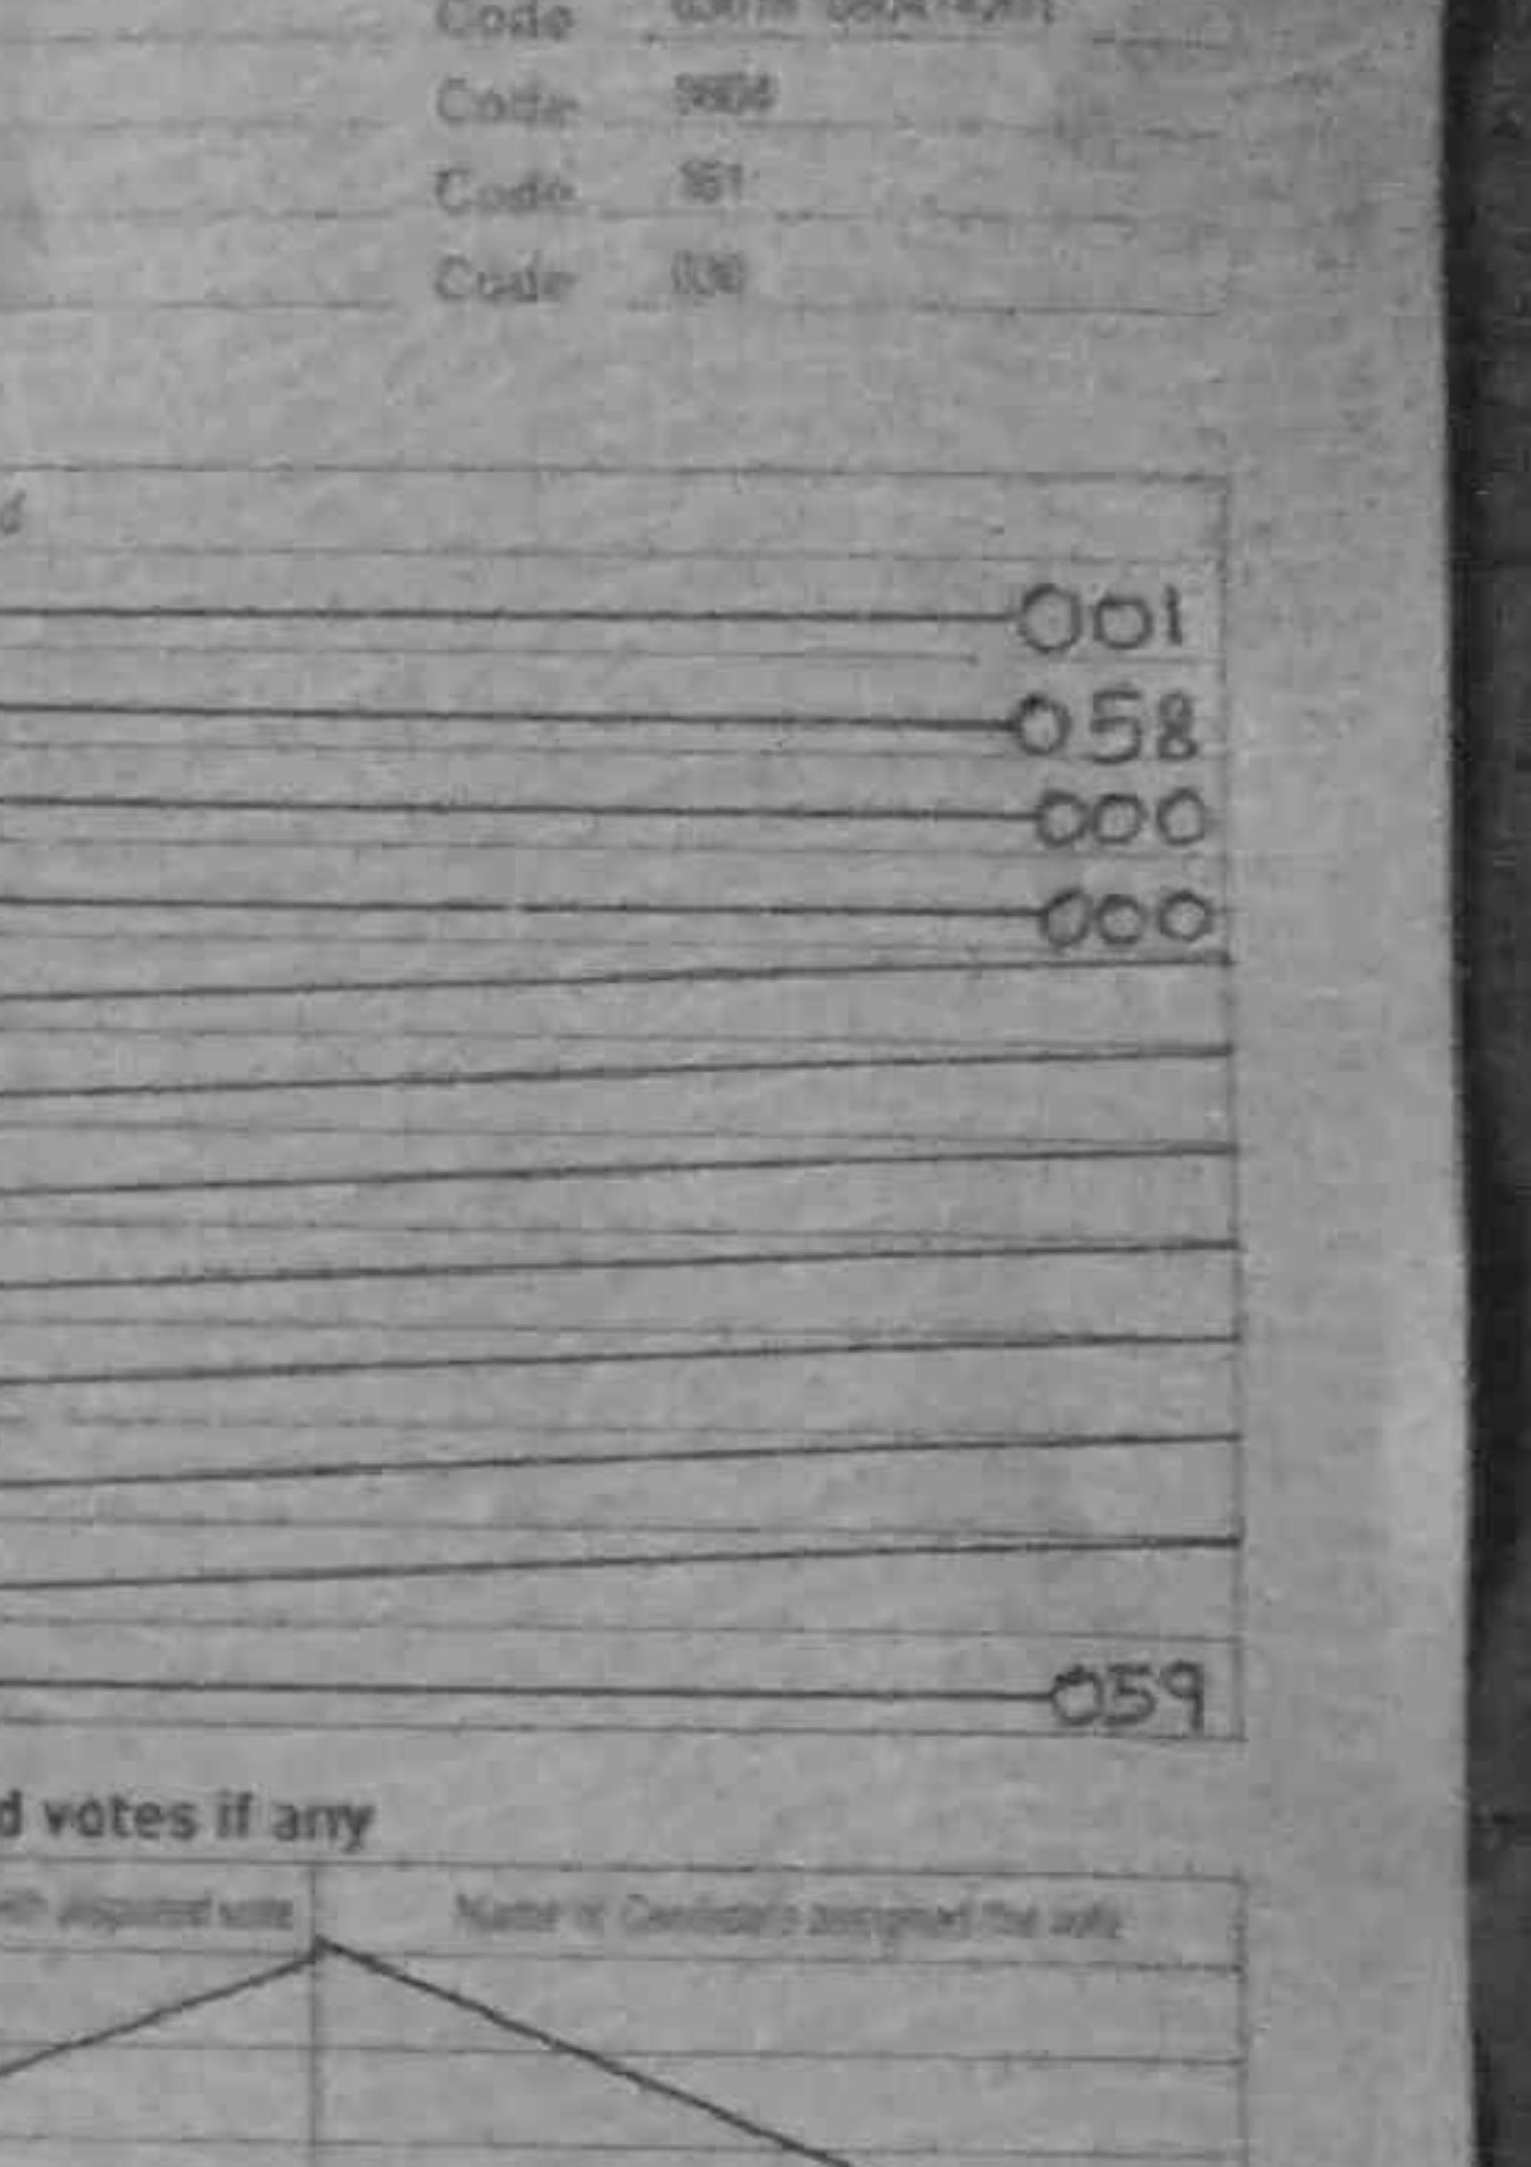 Code
Code
Code 161
Code
001
058
000
000
059
d votes if any
vote Name of Candidate assigned the vote